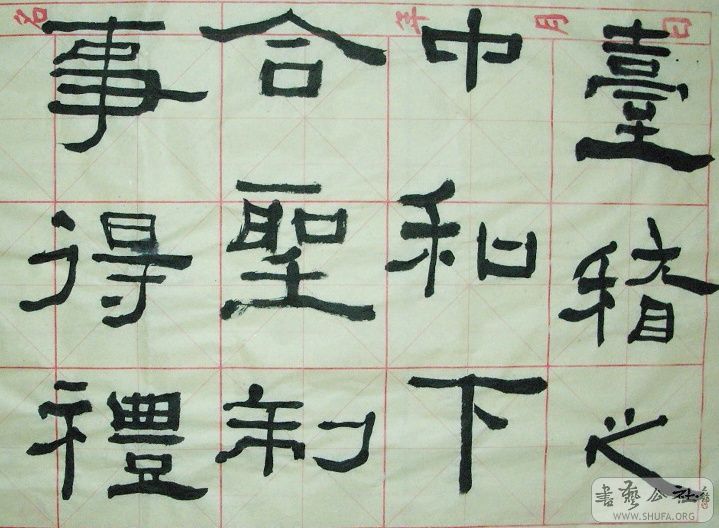 名 年 月 日
臺稽之
中和下
合聖制
事得禮
書藝公社
WWW.SHUFA.ORG